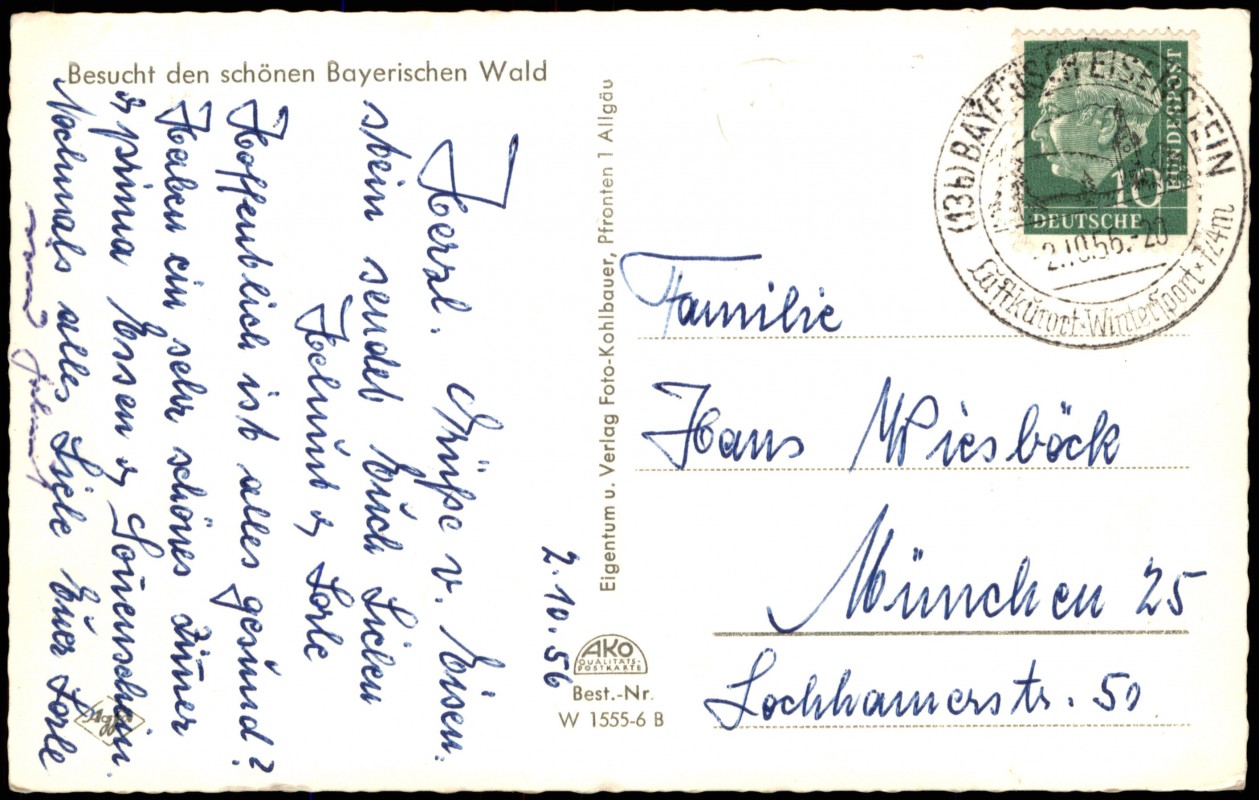 Besucht den schönen Bayerischen Wald
2.10.56
Herzl. Grüße v. Eisen-
stein sendet Euch Lieben
Helmut & Lorle
Hoffentlich ist alles gesund?
Haben ein sehr schönes Zimer
& prima Essen & Sonnenschein.
Nochmals alles Liebe Euer Lorle
Eigentum u. Verlag Foto-Kohlbauer, Pfronten 1 Allgäu
AKO
QUALITÄTS-
POSTKARTE
Best.-Nr.
W 1555-6 B
(13b) BAYERISCH EISENSTEIN
-2.10.56.-20
Luftkurort-Wintersport
DEUTSCHE
BUNDESPOST
10
Familie
Hans Wiesböck
München 25
Lochhamerstr. 50